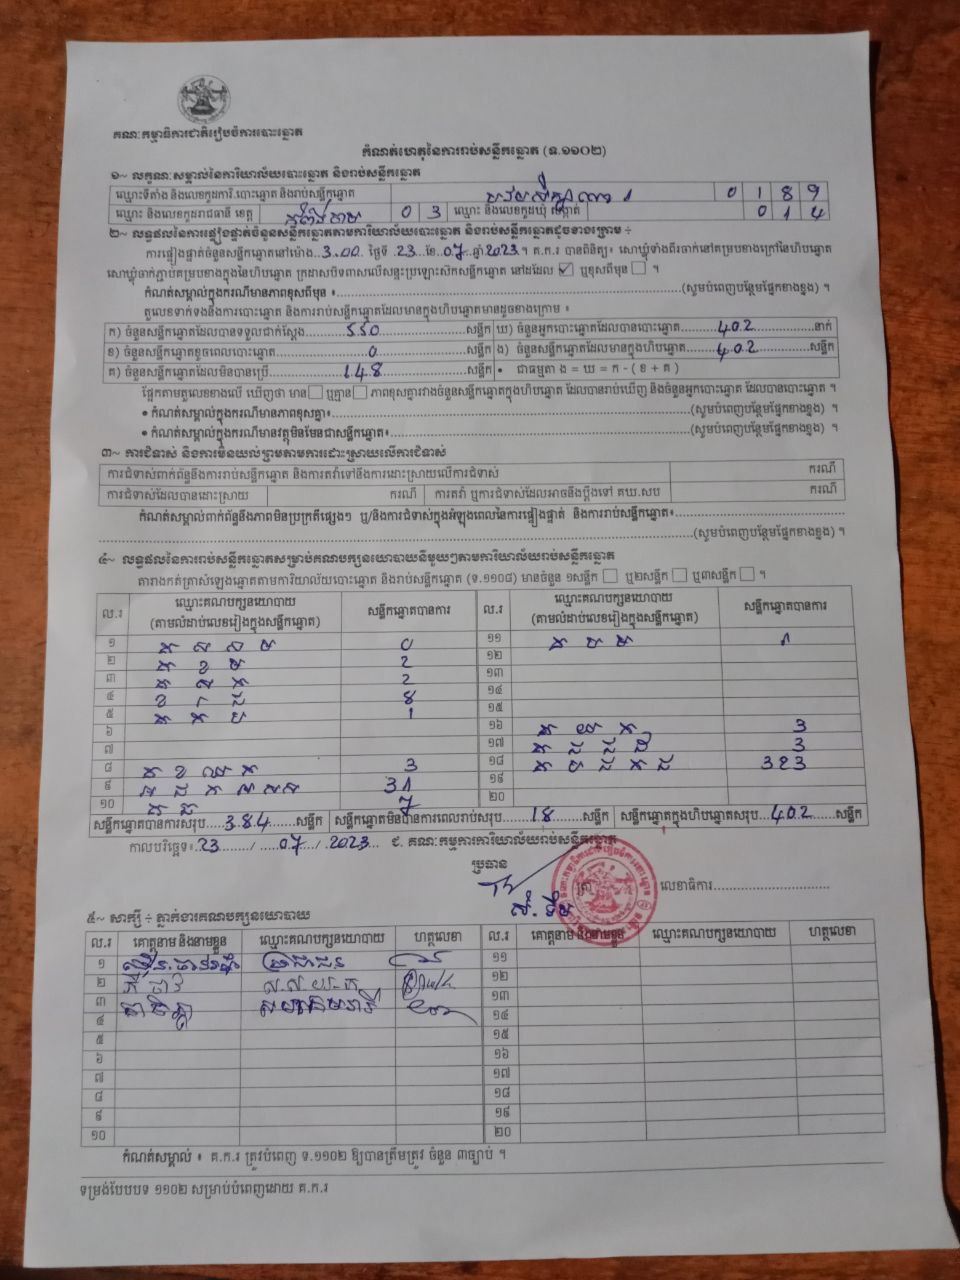 គណៈកម្មាធិការជាតិរៀបចំការបោះឆ្នោត
កំណត់ហេតុនៃការរាប់សន្លឹកឆ្នោត (ទ.១១០២)
១~ លក្ខណៈសម្គាល់នៃការិយាល័យបោះឆ្នោត និងរាប់សន្លឹកឆ្នោត
ឈ្មោះទីតាំង និងលេខកូដការិ.បោះឆ្នោត និងរាប់សន្លឹកឆ្នោត 0 1 8 9
ឈ្មោះ និងលេខកូដរាជធានី ខេត្ត កំពង់ចាម 0 3 ឈ្មោះ និងលេខកូដឃុំ សង្កាត់ 0 1 4
២~ លទ្ធផលនៃការផ្ទៀងផ្ទាត់ចំនួនសន្លឹកឆ្នោតតាមការិយាល័យបោះឆ្នោត និងរាប់សន្លឹកឆ្នោតដូចខាងក្រោម ៖
ការផ្ទៀងផ្ទាត់ចំនួនសន្លឹកឆ្នោតនៅម៉ោង..3.00. ថ្ងៃទី .23..ខែ.07..ឆ្នាំ2023។ គ.ក.រ បានពិនិត្យ៖ សោឃ្មុំទាំងពីរចាក់នៅគម្របខាងក្រៅនៃហិបឆ្នោត
សោឃ្មុំចាក់ភ្ជាប់គម្របខាងក្នុងនៃហិបឆ្នោត ក្រដាសបិទពាសលើសន្ទះប្រឡោះសិកសន្លឹកឆ្នោត នៅដដែល ☑ ឬខុសពីមុន ☐ ។
កំណត់សម្គាល់ក្នុងករណីមានភាពខុសពីមុន ៖........(សូមបំពេញបន្ថែមផ្នែកខាងខ្នង) ។
តួលេខទាក់ទងនឹងការបោះឆ្នោត និងការរាប់សន្លឹកឆ្នោតដែលមានក្នុងហិបឆ្នោតមានដូចខាងក្រោម ៖
ក) ចំនួនសន្លឹកឆ្នោតដែលបានទទួលជាក់ស្តែង......550......សន្លឹក ឃ) ចំនួនអ្នកបោះឆ្នោតដែលបានបោះឆ្នោត......402......នាក់
ខ) ចំនួនសន្លឹកឆ្នោតខូចពេលបោះឆ្នោត......0......សន្លឹក ង) ចំនួនសន្លឹកឆ្នោតដែលមានក្នុងហិបឆ្នោត......402......សន្លឹក
គ) ចំនួនសន្លឹកឆ្នោតដែលមិនបានប្រើ......148......សន្លឹក • ជាធម្មតា ង = ឃ = ក - ( ខ + គ )
ផ្អែកតាមតួលេខខាងលើ ឃើញថា មាន☐ ឬគ្មាន☐ ភាពខុសគ្នារវាងចំនួនសន្លឹកឆ្នោតក្នុងហិបឆ្នោត ដែលបានរាប់ឃើញ និងចំនួនអ្នកបោះឆ្នោត ដែលបានបោះឆ្នោត ។
• កំណត់សម្គាល់ក្នុងករណីមានភាពខុសគ្នា៖........(សូមបំពេញបន្ថែមផ្នែកខាងខ្នង) ។
• កំណត់សម្គាល់ក្នុងករណីមានវត្ថុមិនមែនជាសន្លឹកឆ្នោត៖........(សូមបំពេញបន្ថែមផ្នែកខាងខ្នង) ។
៣~ ការជំទាស់ និងការមិនយល់ព្រមតាមការដោះស្រាយលើការជំទាស់
ការជំទាស់ពាក់ព័ន្ធនឹងការរាប់សន្លឹកឆ្នោត និងការតវ៉ាទៅនឹងការដោះស្រាយលើការជំទាស់ ករណី
ការជំទាស់ដែលបានដោះស្រាយ ករណី ការតវ៉ា ឬការជំទាស់ដែលអាចនឹងប្តឹងទៅ គឃ.សប ករណី
កំណត់សម្គាល់ពាក់ព័ន្ធនឹងភាពមិនប្រក្រតីផ្សេងៗ ឬ/និងការជំទាស់ក្នុងអំឡុងពេលនៃការផ្ទៀងផ្ទាត់ និងការរាប់សន្លឹកឆ្នោត៖........
........(សូមបំពេញបន្ថែមផ្នែកខាងខ្នង) ។
៤~ លទ្ធផលនៃការរាប់សន្លឹកឆ្នោតសម្រាប់គណបក្សនយោបាយនីមួយៗតាមការិយាល័យរាប់សន្លឹកឆ្នោត
តារាងកត់ត្រាសំឡេងឆ្នោតតាមការិយាល័យបោះឆ្នោត និងរាប់សន្លឹកឆ្នោត (ទ.១១០៨) មានចំនួន ១សន្លឹក ☐ ឬ២សន្លឹក ☐ ឬ៣សន្លឹក ☐ ។
ល.រ ឈ្មោះគណបក្សនយោបាយ (តាមលំដាប់លេខរៀងក្នុងសន្លឹកឆ្នោត) សន្លឹកឆ្នោតបានការ ល.រ ឈ្មោះគណបក្សនយោបាយ (តាមលំដាប់លេខរៀងក្នុងសន្លឹកឆ្នោត) សន្លឹកឆ្នោតបានការ
១ 0 ១១ 1
២ គ ខ ម 2 ១២
៣ 2 ១៣
៤ 8 ១៤
៥ 1 ១៥
៦ ១៦ គ យ ក 3
៧ ១៧ 3
៨ 3 ១៨ គ ប ជ ក ជ 323
៩ 31 ១៩
១០ 7 ២០
សន្លឹកឆ្នោតបានការសរុប.....384......សន្លឹក សន្លឹកឆ្នោតមិនបានការពេលរាប់សរុប......18......សន្លឹក សន្លឹកឆ្នោតក្នុងហិបឆ្នោតសរុប..402......សន្លឹក
កាលបរិច្ឆេទ៖.23......./.....07.../..2023... ជ. គណៈកម្មការការិយាល័យរាប់សន្លឹកឆ្នោត
ប្រធាន
ត្រា លេខាធិការ........
៥~ សាក្សី ៖ ភ្នាក់ងារគណបក្សនយោបាយ
ល.រ គោត្តនាម និងនាមខ្លួន ឈ្មោះគណបក្សនយោបាយ ហត្ថលេខា ល.រ គោត្តនាម និងនាមខ្លួន ឈ្មោះគណបក្សនយោបាយ ហត្ថលេខា
១ ប្រជាជន ១១
២ ១២
៣ ១៣
៤ ១៤
៥ ១៥
៦ ១៦
៧ ១៧
៨ ១៨
៩ ១៩
១០ ២០
កំណត់សម្គាល់ ៖ គ.ក.រ ត្រូវបំពេញ ទ.១១០២ ឱ្យបានត្រឹមត្រូវ ចំនួន ៣ច្បាប់ ។
ទម្រង់បែបបទ ១១០២ សម្រាប់បំពេញដោយ គ.ក.រ